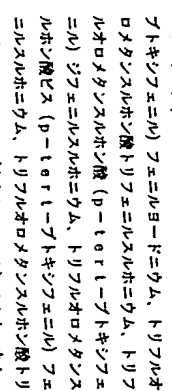 ブトキシフェニル) フェニルヨードニウム、トリフルオ
ロメタンスルホン酸トリフェニルスルホニウム、トリフ
ルオロメタンスルホン酸 (p－tert－ブトキシフェ
ニル) ジフェニルスルホニウム、トリフルオロメタンス
ルホン酸ビス (p－tert－ブトキシフェニル) フェ
ニルスルホニウム、トリフルオロメタンスルホン酸トリ